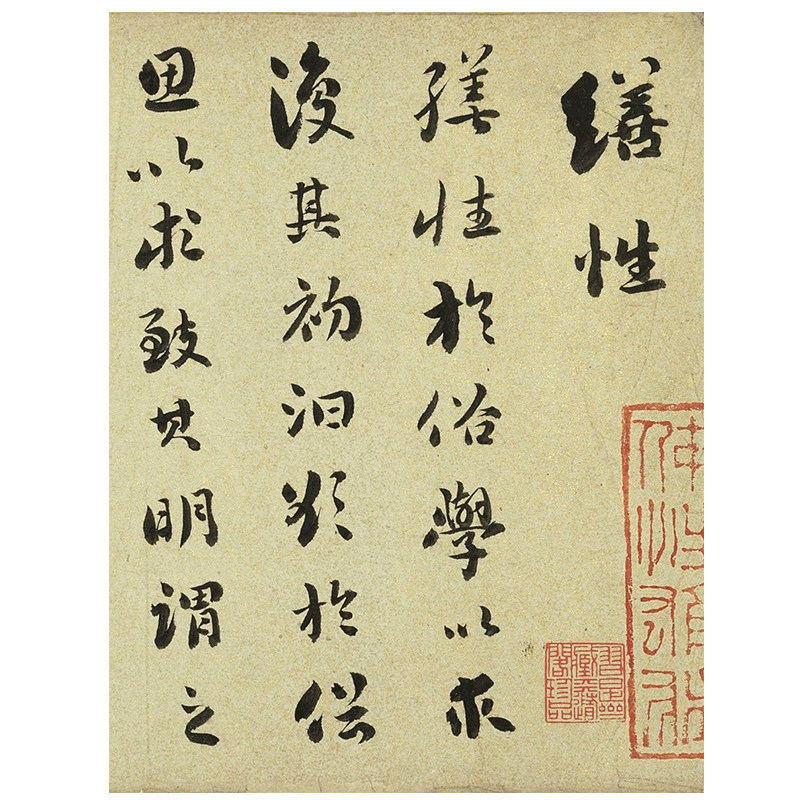 繕性
繕性於俗學以求
復其初汩欲於俗
思以求致其明謂之